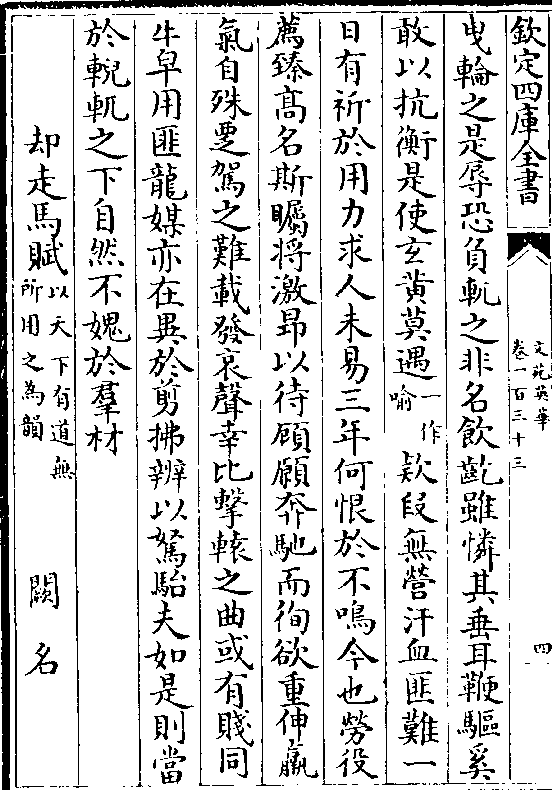 欽定四庫全書
文苑英華
卷一百三十三
四
曳輪之是辱恐負軏之非名飲齕雖憐其垂耳鞭驅奚
敢以抗衡是使玄黄莫遇一作喻欵段無營汗血匪難一
日有祈於用力求人未易三年何恨於不鳴今也勞役
薦臻髙名斯矚将激昂以待顧願奔馳而徇欲重伸羸
氣自殊耍駕之難載發哀聲幸比擊轅之曲或有賤同
牛皁用匪龍媒亦在異於剪拂辨以駑駘夫如是則當
於輗軏之下自然不媿於羣材
却走馬賦以天下有道無所用之為韻 闕名